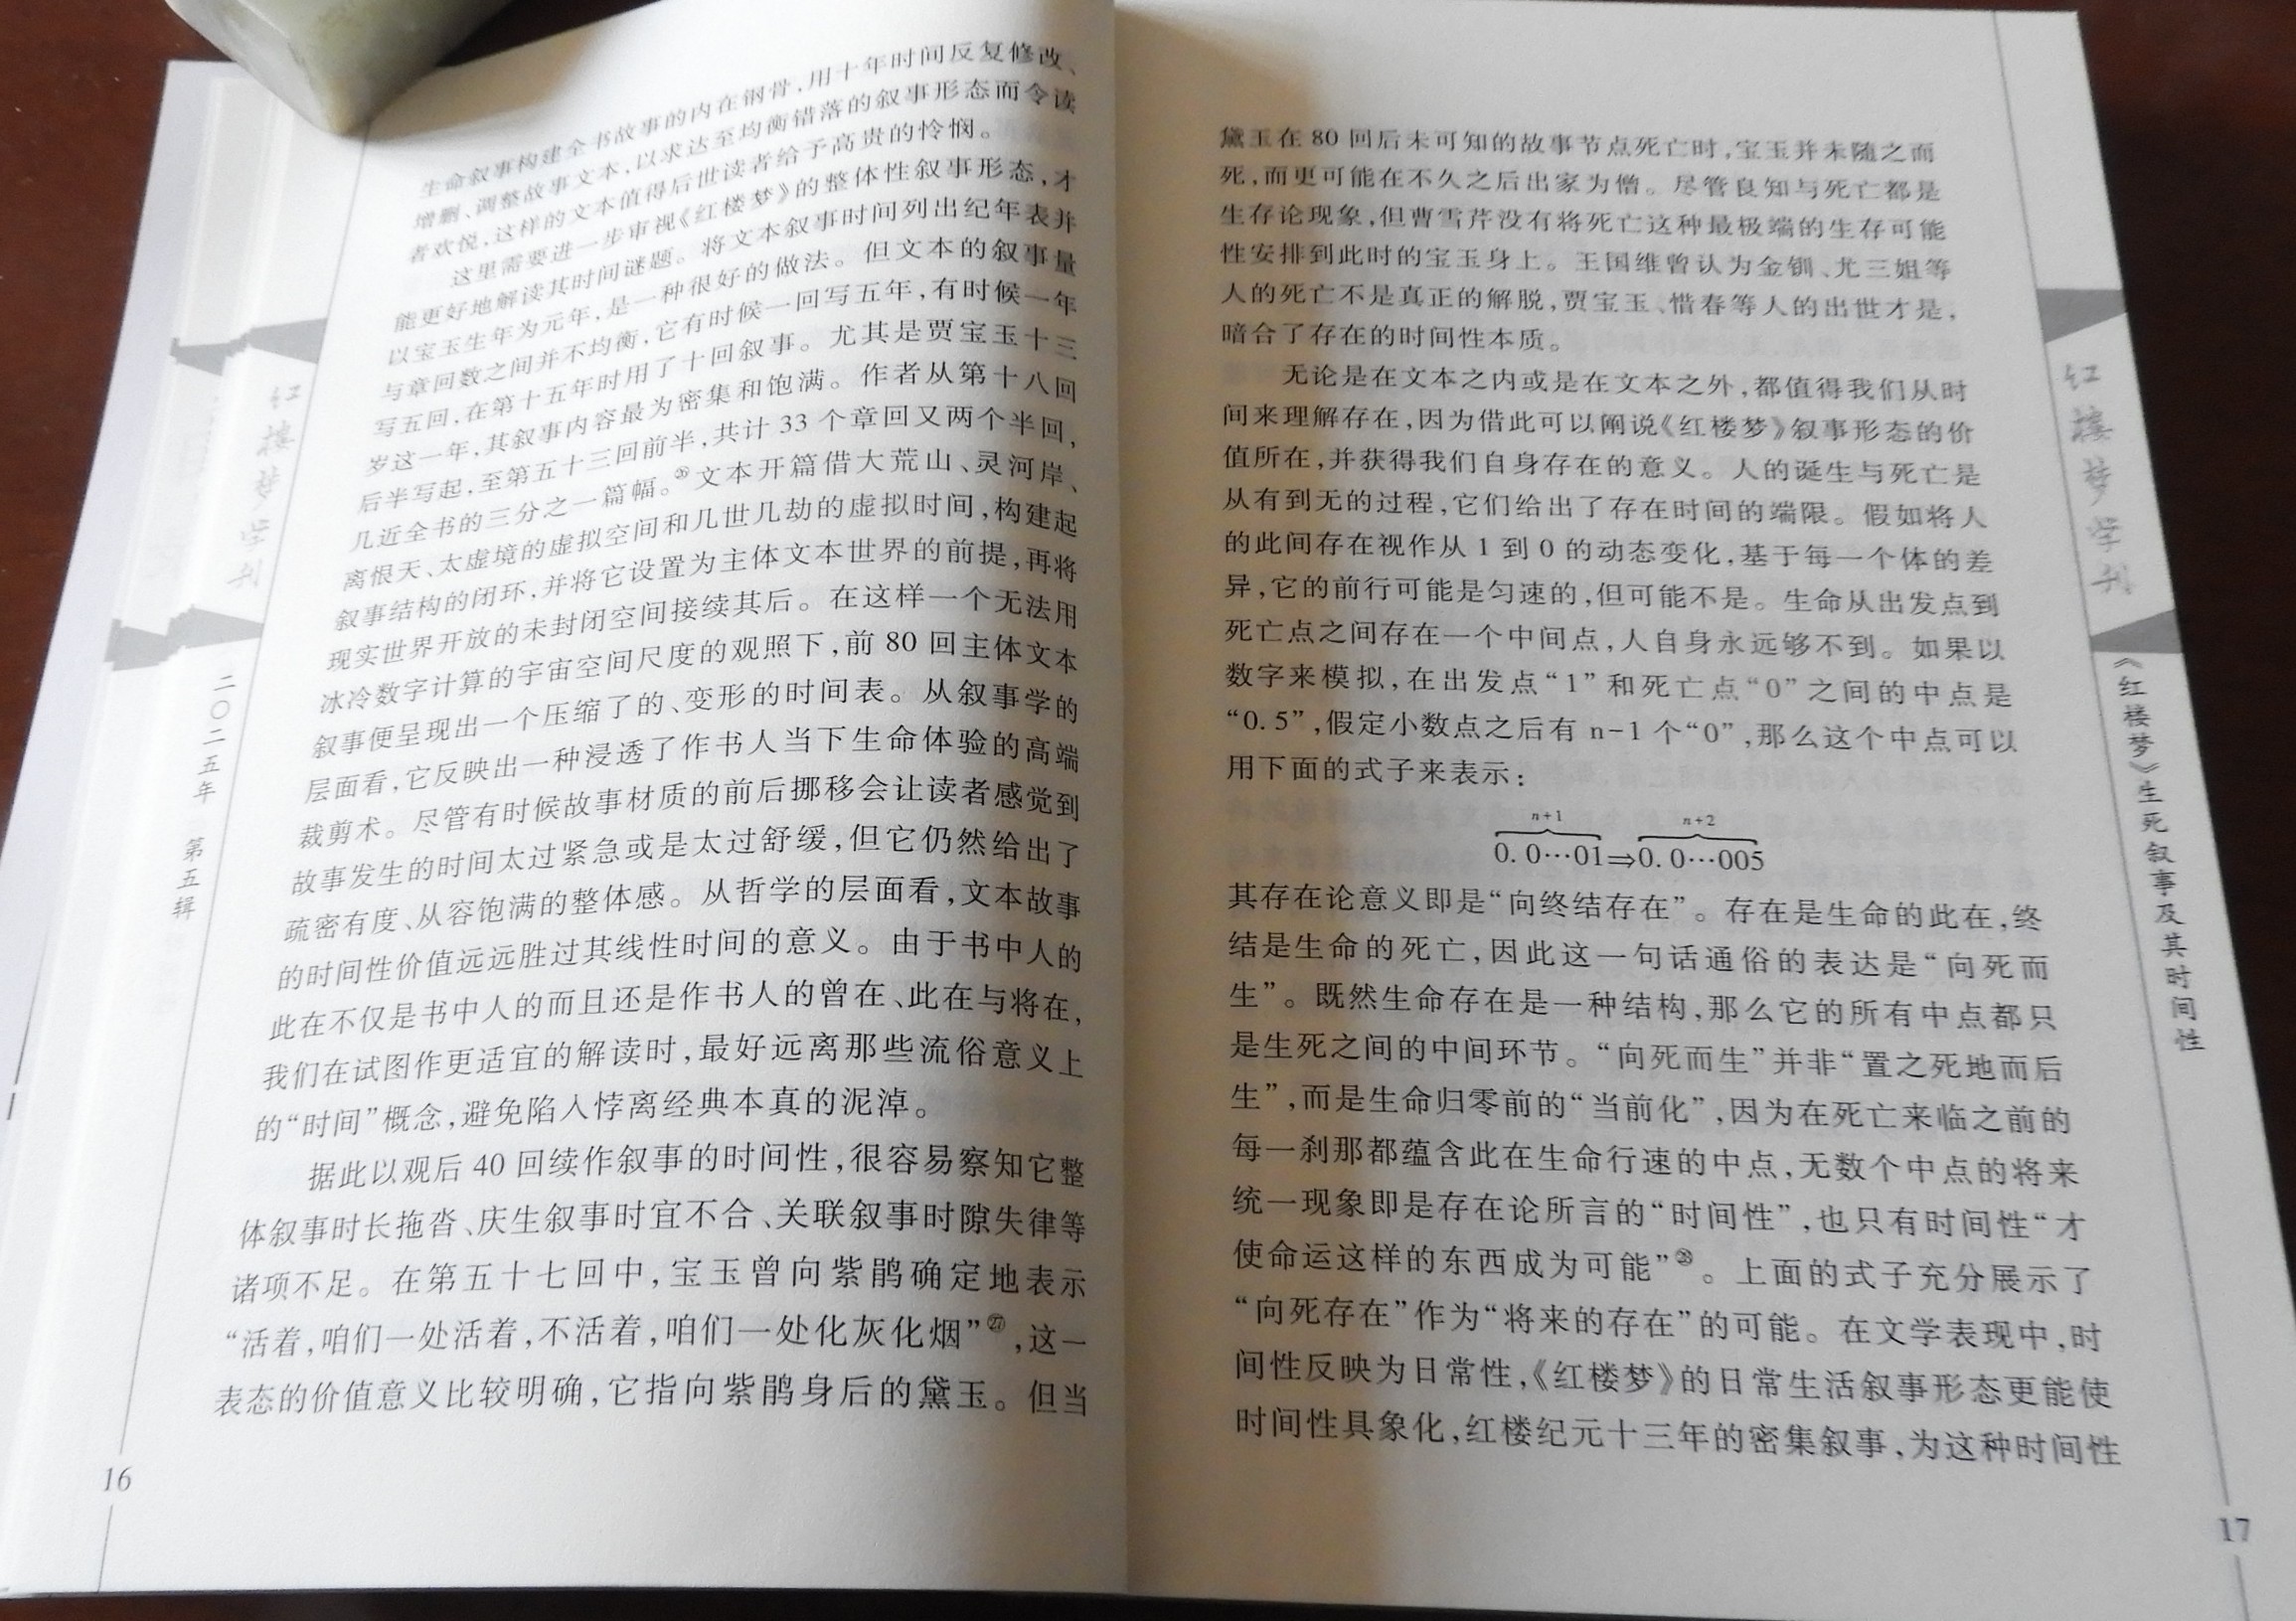 生命叙事构建全书故事的内在钢骨，用十年时间反复修改、
增删、调整故事文本，以求达至均衡错落的叙事形态而令读
者欢悦，这样的文本值得后世读者给予高贵的怜悯。
这里需要进一步审视《红楼梦》的整体性叙事形态，才
能更好地解读其时间谜题。将文本叙事时间列出纪年表并
以宝玉生年为元年，是一种很好的做法。但文本的叙事量
与章回数之间并不均衡，它有时候一回写五年，有时候一年
写五回，在第十五年时用了十回叙事。尤其是贾宝玉十三
岁这一年，其叙事内容最为密集和饱满。作者从第十八回
后半写起，至第五十三回前半，共计 33 个章回又两个半回，
几近全书的三分之一篇幅。㉖文本开篇借大荒山、灵河岸、
离恨天、太虚境的虚拟空间和几世几劫的虚拟时间，构建起
叙事结构的闭环，并将它设置为主体文本世界的前提，再将
现实世界开放的未封闭空间接续其后。在这样一个无法用
冰冷数字计算的宇宙空间尺度的观照下，前 80 回主体文本
叙事便呈现出一个压缩了的、变形的时间表。从叙事学的
层面看，它反映出一种浸透了作书人当下生命体验的高端
裁剪术。尽管有时候故事材质的前后挪移会让读者感觉到
故事发生的时间太过紧急或是太过舒缓，但它仍然给出了
疏密有度、从容饱满的整体感。从哲学的层面看，文本故事
的时间性价值远远胜过其线性时间的意义。由于书中人的
此在不仅是书中人的而且还是作书人的曾在、此在与将在，
我们在试图作更适宜的解读时，最好远离那些流俗意义上
的“时间”概念，避免陷入悖离经典本真的泥淖。
据此以观后 40 回续作叙事的时间性，很容易察知它整
体叙事时长拖沓、庆生叙事时宜不合、关联叙事时隙失律等
诸项不足。在第五十七回中，宝玉曾向紫鹃确定地表示
“活着，咱们一处活着，不活着，咱们一处化灰化烟”㉗，这一
表态的价值意义比较明确，它指向紫鹃身后的黛玉。但当
16
红楼梦学刊
二〇二五年 第五辑
黛玉在 80 回后未可知的故事节点死亡时，宝玉并未随之而
死，而更可能在不久之后出家为僧。尽管良知与死亡都是
生存论现象，但曹雪芹没有将死亡这种最极端的生存可能
性安排到此时的宝玉身上。王国维曾认为金钏、尤三姐等
人的死亡不是真正的解脱，贾宝玉、惜春等人的出世才是，
暗合了存在的时间性本质。
无论是在文本之内或是在文本之外，都值得我们从时
间来理解存在，因为借此可以阐说《红楼梦》叙事形态的价
值所在，并获得我们自身存在的意义。人的诞生与死亡是
从有到无的过程，它们给出了存在时间的端限。假如将人
的此间存在视作从 1 到 0 的动态变化，基于每一个体的差
异，它的前行可能是匀速的，但可能不是。生命从出发点到
死亡点之间存在一个中间点，人自身永远够不到。如果以
数字来模拟，在出发点“1”和死亡点“0”之间的中点是
“0.5”，假定小数点之后有 n-1 个“0”，那么这个中点可以
用下面的式子来表示：
n+1 n+2
0.0…01⇒0.0…005
其存在论意义即是“向终结存在”。存在是生命的此在，终
结是生命的死亡，因此这一句话通俗的表达是“向死而
生”。既然生命存在是一种结构，那么它的所有中点都只
是生死之间的中间环节。“向死而生”并非“置之死地而后
生”，而是生命归零前的“当前化”，因为在死亡来临之前的
每一刹那都蕴含此在生命行速的中点，无数个中点的将来
统一现象即是存在论所言的“时间性”，也只有时间性“才
使命运这样的东西成为可能”㉘。上面的式子充分展示了
“向死存在”作为“将来的存在”的可能。在文学表现中，时
间性反映为日常性，《红楼梦》的日常生活叙事形态更能使
时间性具象化，红楼纪元十三年的密集叙事，为这种时间性
红楼梦学刊
《红楼梦》生死叙事及其时间性
17